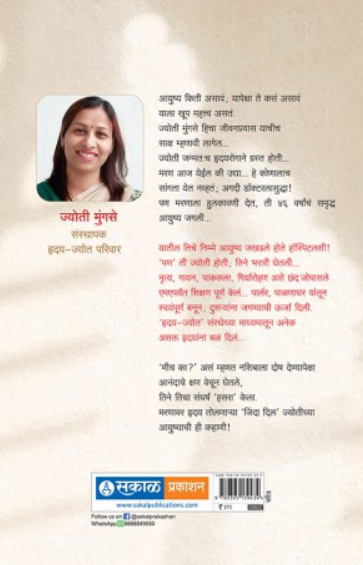 आयुष्य किती असावं; यापेक्षा ते कसं असावं
याला खूप महत्त्व असतं.
ज्योती मुंगसे हिचा जीवनप्रवास याचीच
साक्ष म्हणावी लागेल...
ज्योती जन्मतःच हृदयरोगाने ग्रस्त होती...
मरण आज येईल की उद्या... हे कोणालाच
सांगता येत नव्हतं; अगदी डॉक्टरलासुद्धा!
पण मरणाला हुलकावणी देत, ती ४६ वर्षांचं समृद्ध
आयुष्य जगली...
ज्योती मुंगसे
संस्थापक
हृदय-ज्योत परिवार
यातील तिचे निम्मे आयुष्य जखडले होते हॉस्पिटलशी!
'पण' ती ज्योती होती; तिने भरारी घेतली...
नृत्य, गायन, पाककला, गिर्यारोहण असे छंद जोपासले
एमएपर्यंत शिक्षण पूर्ण केलं... पार्लर, पाळणाघर यांतून
स्वयंपूर्ण बनून; दुसऱ्यांना जगण्याची ऊर्जा दिली.
'हृदय-ज्योत' संस्थेच्या माध्यमातून अनेक
अशक्त हृदयांना बळ दिलं...
'मीच का?' असं म्हणत नशिबाला दोष देण्यापेक्षा
आनंदाचे क्षण वेचून घेतले,
तिने तिचा संघर्ष 'हसरा' केला.
मरणावर हृदय तोलणाऱ्या 'जिंदा दिल' ज्योतीच्या
आयुष्याची ही कहाणी!
सकाळ प्रकाशन
www.sakalpublications.com
Follow us on @sakalprakashan
WhatsApp 8888849050